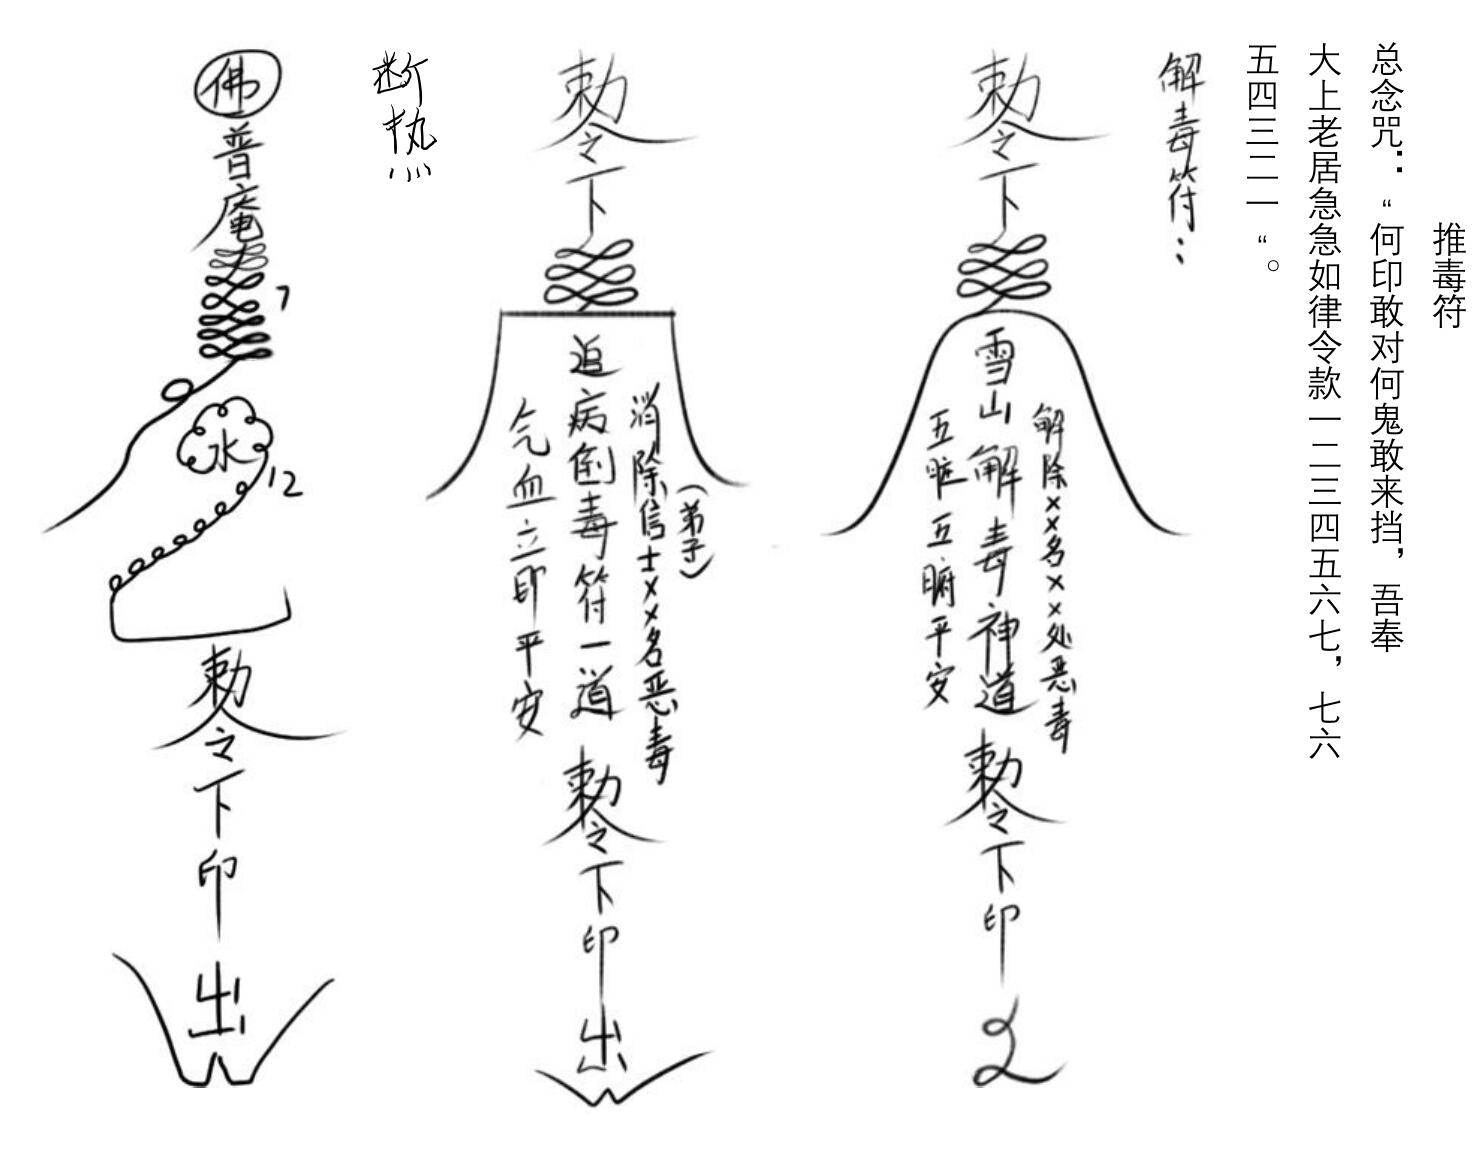 推毒符
总念咒：“何印敢对何鬼敢来挡，吾奉
大上老居急急如律令款一二三四五六七，七六
五四三二一“。
解毒符：
勅令下
解除××名××处恶毒
雪山解毒神道
五脏五腑平安
勅令下印
勅令下
消除信士××名恶毒
（弟子）
追病倒毒符一道
气血立即平安
勅令下印
出
断热
佛
普庵
7
水
12
勅令下印
出